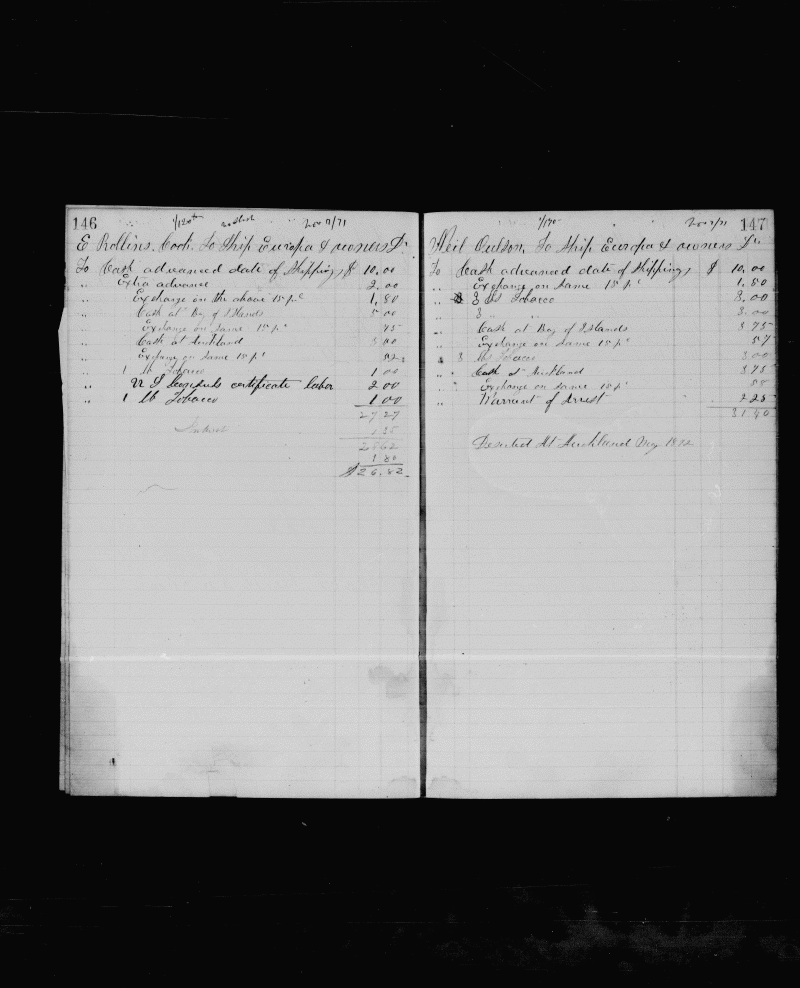 146
1/120
Nov 7/71
E Rollins. Cook. To Ship Europa & owners Dr
To Cash advanced date of Shipping, $ 10.00
" Extra advance 2.00
" Exchange on the above 15 pc 1.80
" Cash at Bay of Islands 5 00
" Exchange on Same 15 pc 75
" Cash at Auckland 5 00
" Exchange on Same 15 pc
" 1 lb Tobacco 1 00
" U S certificate labor 2 00
" 1 lb Tobacco 1 00
27 27
Interest 1 35
28 62
1 80
$ 26.82
147
1/170
Nov 7/71
Neil To Ship Europa & owners Dr.
To Cash advanced date of Shipping, $ 10.00
" Exchange on Same 15 pc 1.50
" 3 lbs Tobacco 3.00
" 3 " " 3.00
" Cash at Bay of Islands 3 75
" Exchange on Same 15 pc 57
" 3 lbs Tobacco 3 00
" Cash at Auckland 3 75
" Exchange on Same 15 pc 58
" Warrant of Arrest 2 25
31.40
Deserted At Auckland May 1872